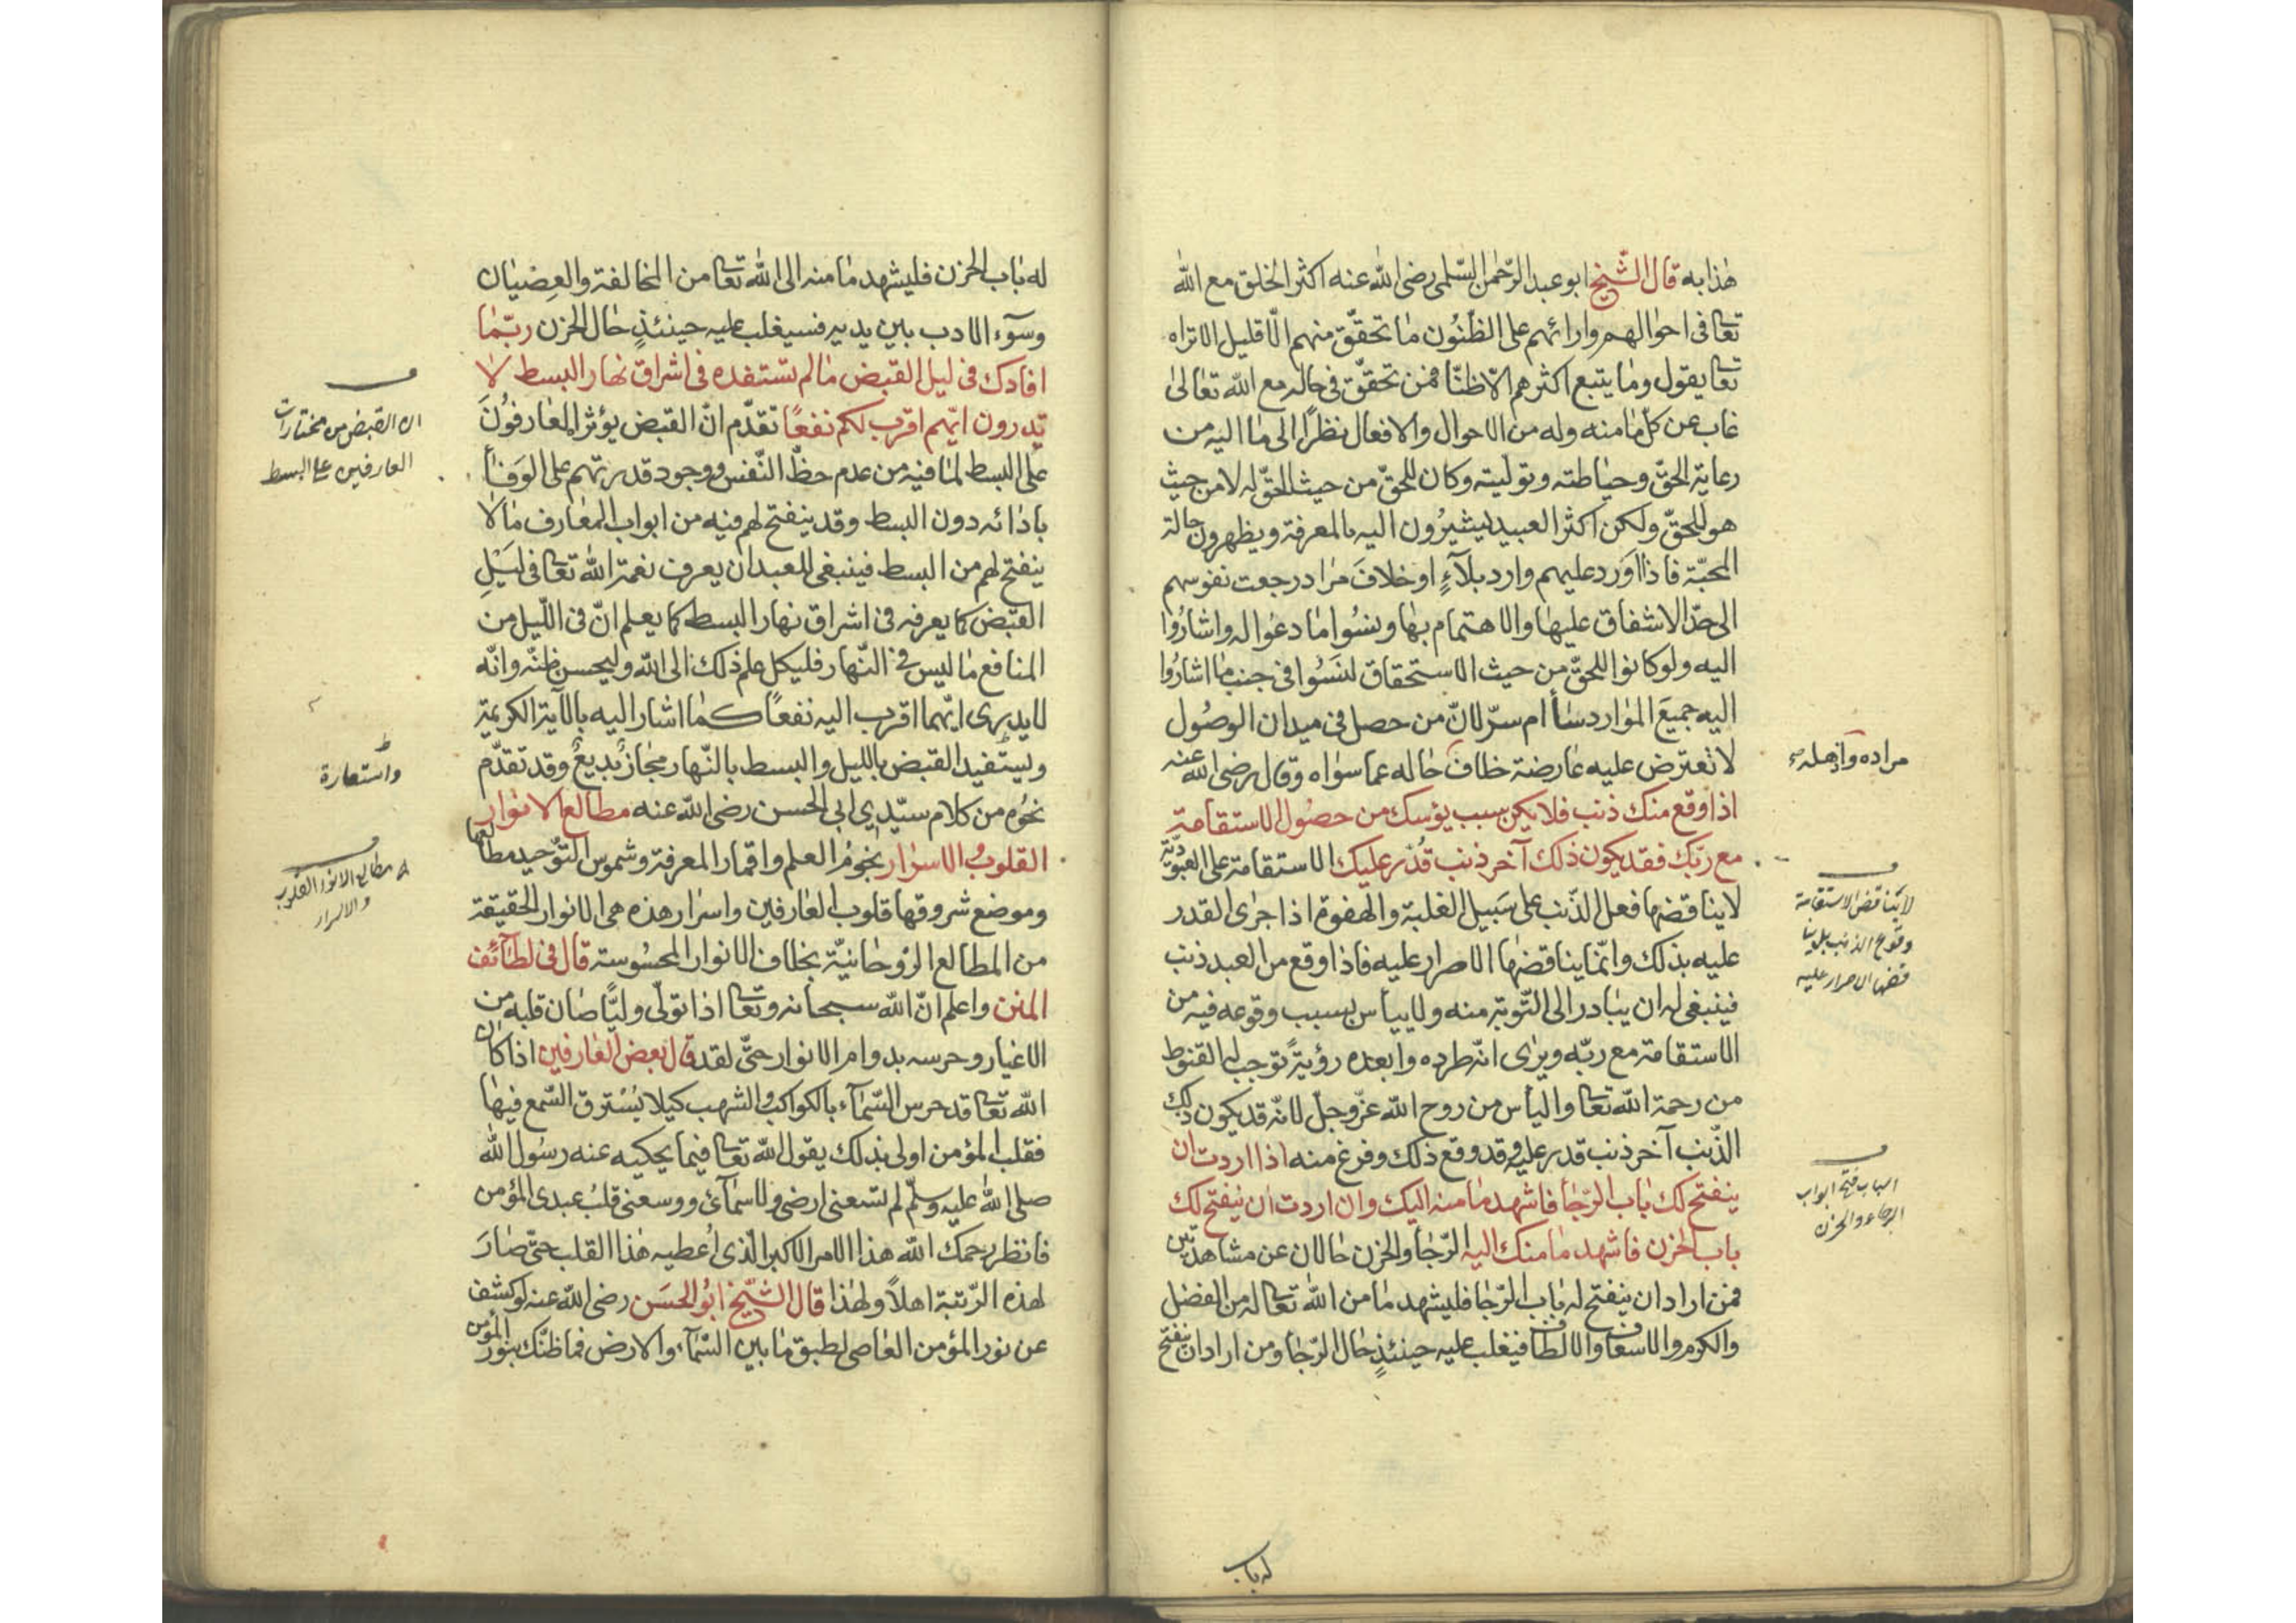 هذا به قال الشيخ ابو عبد الرحمن السلمي رضى الله عنه اكثر الخلق مع الله
تعا فى احوالهم وارائهم على الظنون ما تحقق منهم الا قليل الا تراه
تعا يقول وما يتبع اكثرهم الا ظنا فمن تحقق فى حاله مع الله تعالى
غاب عن كل ما منه وله من الاحوال والافعال نظرا الى ما اليه من
رعاية الحق وحياطته وتوليته وكان للحق من حيث الحق له لا من حيث
هو للحق ولكن اكثر العبيد يشيرون اليه بالمعرفة ويظهرون حالة
المحبة فاذا اورد عليهم وارد بلاء او خلاف مراد رجعت نفوسهم
الى حد الاشفاق عليها والاهتمام بها ونسوا ما دعوا له واشاروا
اليه ولو كانوا للحق من حيث الاستحقاق لنسوا فى جنب ما اشاروا
اليه جميع الموارد ساأ ام سر لان من حصل فى ميدان الوصول
لا تعترض عليه عارضة خلاف حاله عما سواه وقال رضى الله عنه
مراده واذهله
اذا وقع منك ذنب فلا يكن سبب يؤسك من حصول الاستقامة
مع ربك فقد يكون ذلك آخر ذنب قدر عليك الاستقامة على العبودية
لا يناقضها فعل الذنب على سبيل الغلبة والهفوة اذا جرى القدر
عليه بذلك وانما يناقضها الاصرار عليه فاذا وقع من العبد ذنب
لا يناقض الاستقامة
وقوع الذنب بل ينا
قضها الاصرار عليه
فينبغى له ان يبادر الى التوبة منه ولا ييأس بسبب وقوعه فيه من
الاستقامة مع ربه ويرى انه طرده وابعده رؤية توجب له القنوط
من رحمة الله تعا واليأس من روح الله عز وجل لانه قد يكون ذلك
الذنب آخر ذنب قدر عليه وقد وقع ذلك وفرغ منه اذا اردت ان
ينفتح لك باب الرجا فاشهد ما منه اليك وان اردت ان ينفتح لك
باب الحزن فاشهد ما منك اليه الرجا والحزن حالان عن مشاهدتين
اسباب فتح ابواب
الرجاء والحزن
فمن اراد ان ينفتح له باب الرجا فليشهد ما من الله تعا له من الفضل
والكرم والاسعاف والالطاف فيغلب عليه حينئذ حال الرجا ومن اراد ان ينفتح
له باب
له باب الحزن فليشهد ما منه الى الله تعا من المخالفة والعصيان
وسوء الادب بين يديه فسيغلب عليه حينئذ حال الحزن ربما
افادك فى ليل القبض ما لم تستفده فى اشراق نهار البسط لا
تدرون ايهم اقرب لكم نفعا تقدم ان القبض يؤثر العارفون
على البسط لما فيه من عدم حظ النفس ووجود قدرتهم على الوفا
ان القبض من مختارات
العارفين على البسط
بادائه دون البسط وقد ينفتح لهم فيه من ابواب المعارف ما لا
ينفتح لهم من البسط فينبغى للعبد ان يعرف نعمة الله تعا فى ليل
القبض كما يعرفه فى اشراق نهار البسط كما يعلم ان فى الليل من
المنافع ما ليس فى النهار فليكل علم ذلك الى الله وليحسن ظنه وانه
لا يدرى ايهما اقرب اليه نفعا كما اشار اليه بالآية الكريمة
وليستفيد القبض بالليل والبسط بالنهار مجاز بديع وقد تقدم
واستعارة
نحوه من كلام سيدي ابى الحسن رضى الله عنه مطالع الانوار
القلوب والاسرار نجوم العلم واقمار المعرفة وشموس التوحيد مطالعها
مطالع الانوار القلوب
والاسرار
وموضع شروقها قلوب العارفين واسرار هذه هى الانوار الحقيقة
من المطالع الروحانية بخلاف الانوار المحسوسة قال فى لطائف
المنن واعلم ان الله سبحانه وتعا اذا تولى وليا صان قلبه من
الاغيار وحرسه بدوام الانوار حتى لقد قال بعض العارفين اذا كان
الله تعا قد حرس السماء بالكواكب والشهب كيلا يسترق السمع فيها
فقلب المؤمن اولى بذلك يقول الله تعا فيما يحكيه عنه رسول الله
صلى الله عليه وسلم لم تسعنى ارضى ولا سمائى ووسعنى قلب عبدى المؤمن
فانظر رحمك الله هذا الامر الاكبر الذى اعطيه هذا القلب حتى صار
لهذه الرتبة اهلا ولهذا قال الشيخ ابو الحسن رضى الله عنه لو كشف
عن نور المؤمن العاصى لطبق ما بين السماء والارض فما ظنك بنور المؤمن